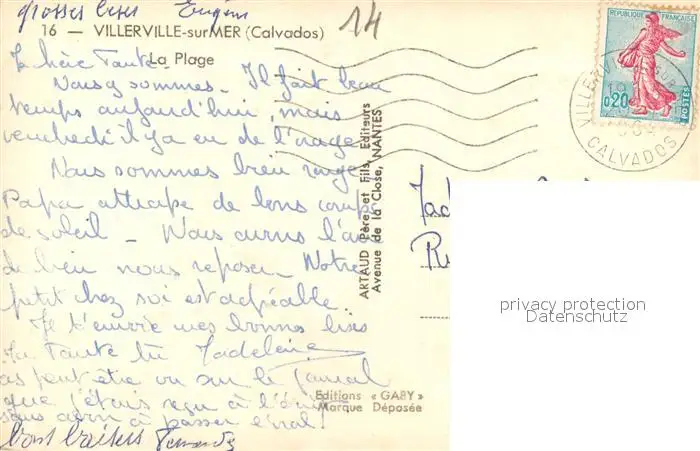 grosses bises Eugène
14
16 — VILLERVILLE-sur-MER (Calvados)
La Plage
RÉPUBLIQUE FRANÇAISE
0,20
POSTES
VILLERVILLE SUR
CALVADOS
Chère Tante
Nous y sommes. Il fait beau
temps aujourd'hui, mais
vendredi il y a eu de l'orage
Nous sommes bien
Papa attrape de bons coups
de soleil — Nous avons l'air
de bien nous reposer. Notre
petit chez soi est adorable.
Je t'envoie mes bonnes bises
Tante tu
as peut être vu sur le Journal
que j'étais reçu à
sans avoir à passer l'oral!
bons baisers
ARTAUD Père et Fils, Editeurs
Avenue de la Close, NANTES
Editions « GABY »
Marque Déposée
privacy protection
Datenschutz